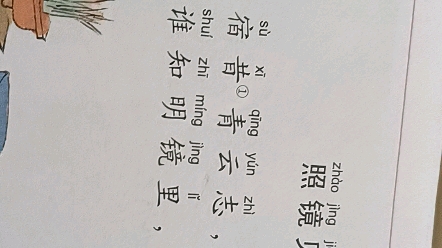 zhào jìng
照镜
sù xī qīng yún zhì
宿昔①青云志，
shuí zhī míng jìng lǐ
谁知明镜里，